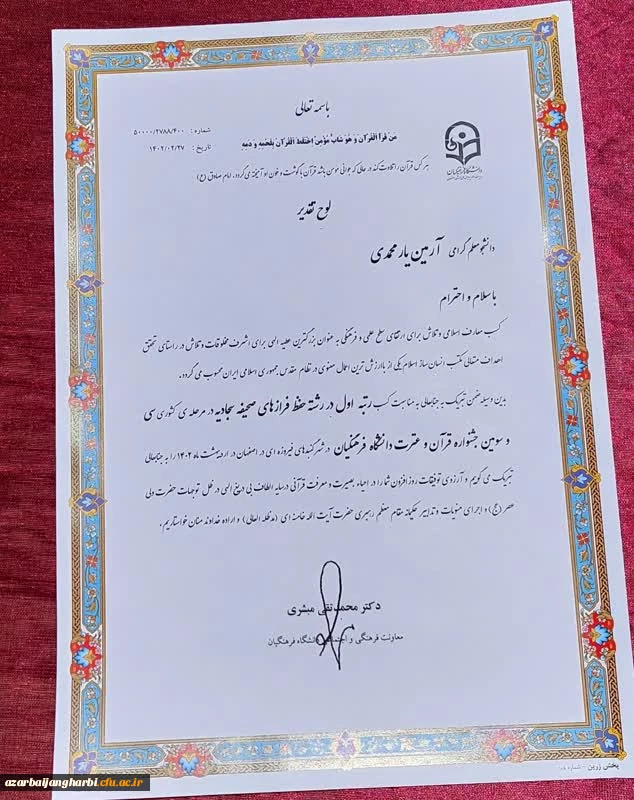 باسمه تعالی
شماره : ۵۰۰۰۰/۲۷۸۸/۴۰۰
تاریخ : ۱۴۰۲/۰۲/۲۷
مَن قَرَأ القُرآنَ وَ هُوَ شابٌّ مُؤمِنٌ اِختَلَطَ القُرآنُ بِلَحمِهِ وَ دَمِهِ
هر کس قرآن را تلاوت کند در حالی که جوانی مومن باشد قرآن با گوشت و خون او آمیخته می گردد. امام صادق (ع)
دانشگاه فرهنگیان
لوح تقدیر
دانشجو معلم گرامی آرمین یارمحمدی
با سلام و احترام
کسب معارف اسلامی و تلاش برای ارتقای سطح علمی و فرهنگی به عنوان بزرگترین عطیه الهی برای اشرف مخلوقات و تلاش در راستای تحقق
اهداف متعالی مکتب انسان ساز اسلام یکی از باارزش ترین اعمال معنوی در نظام مقدس جمهوری اسلامی ایران محسوب می گردد.
بدین وسیله ضمن تبریک به جنابعالی به مناسبت کسب رتبه اول در رشته حفظ فرازهای صحیفه سجادیه در مرحله ی کشوری سی
و سومین جشنواره قرآن و عترت دانشگاه فرهنگیان در شهر گنبدهای فیروزه ای در اصفهان در اردیبهشت ماه ۱۴۰۲ را به جنابعالی
تبریک می گویم و آرزوی توفیقات روزافزون شما را در احیاء بصیرت و معرفت قرآنی در سایه الطاف بی دریغ الهی در ظل توجهات حضرت ولی
عصر (عج) و اجرای منویات و تدابیر حکیمانه مقام معظم رهبری حضرت آیت الله خامنه ای (مدظله العالی) و اراده خداوند منان خواستاریم.
دکتر محمدتقی مبشری
معاونت فرهنگی و اجتماعی دانشگاه فرهنگیان
پخش زرین - شماره
azarbaijangharbi.cfu.ac.ir